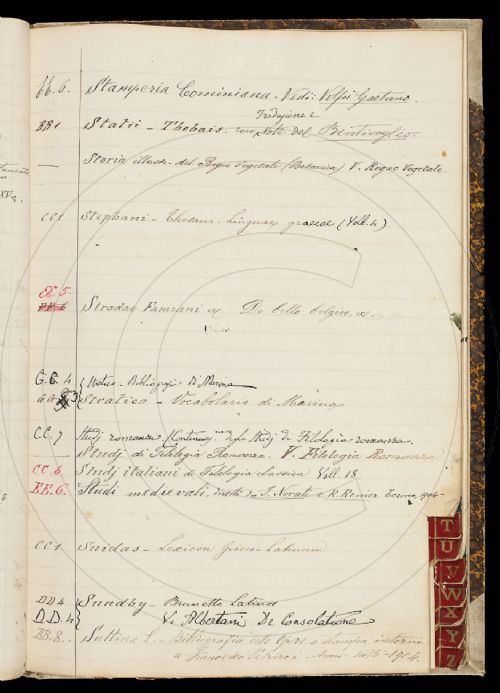 EE. 6. Stamperia Cominiana. Vedi: Volpi Gaetano.
Traduzione e
BB 1 Statii – Thebais. con Note del Bentivoglio.
— Storia illustr. del Regno Vegetale (Botanica) V. Regno Vegetale.
CC 1 Stephani – Thesaur. Linguae graecae (Voll. 4)
EE. 5.
Stradae Famiani De bello belgico,
G.G. 4 Bibliografia di Marina
Stratico – Vocabolario di Marina
C.C. 7 Studj romanzi (Continuaz. degli Studj di Filologia romanza.
— Studj di Filologia Romanza. V. Filologia Romanza
CC. 6. Studj italiani di Filologia classica Voll. 18
EE. 6. Studi medievali, diretti da F. Novati e R. Renier Torino, 1904–
CC 1 Suidas – Lexicon Graeco-Latinum
DD 4 Sundby – Brunetto Latino
D.D. 4 Albertani De Consolatione
BB. 8. Suttina L. – Bibliografia delle Opere a stampa intorno
a Francesco Petrarca
T
U
V
W
X
Y
Z